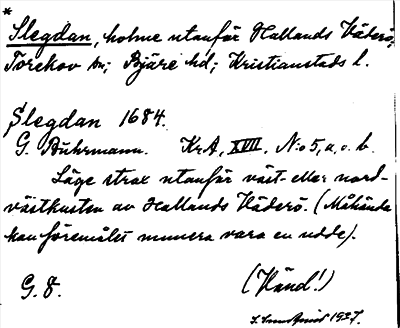 *
Slegdan, holme utanför Hallands Väderö,
Torekov sn; Bjäre hd; Kristianstads l.
Slegdan 1684.
G. Buhrmann. Kr.A, XVII. N:o 5, a, o. b.
Läge strax utanför väst- eller nord-
västkusten av Hallands Väderö. (Måhända
kan föremålet numera vara en udde).
G. F. (Vänd!)
1927.